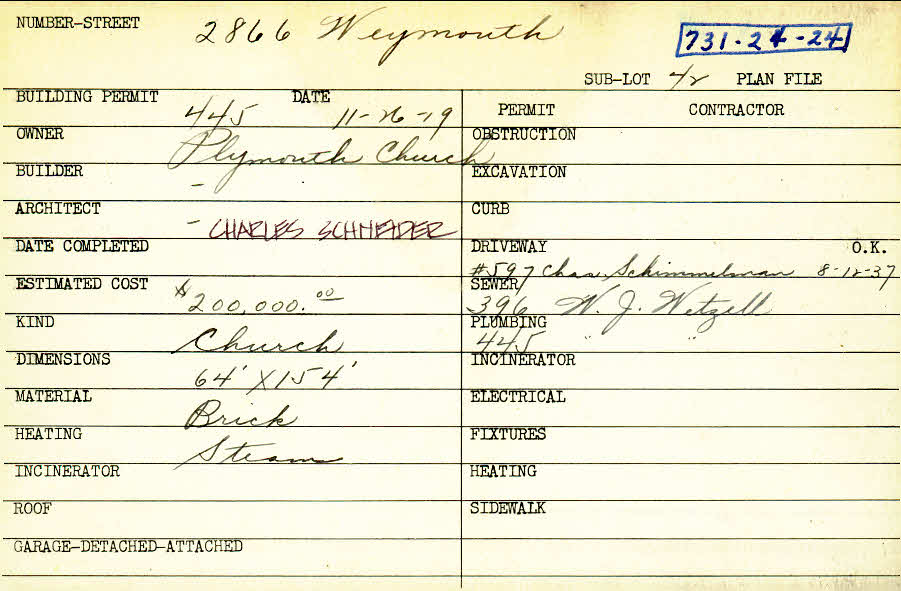 NUMBER-STREET 2866 Weymouth 731-24-24
SUB-LOT 4/2 PLAN FILE
BUILDING PERMIT 445 DATE 11-26-19
PERMIT CONTRACTOR
OWNER Plymouth Church
OBSTRUCTION
BUILDER -
EXCAVATION
ARCHITECT - CHARLES SCHNEIDER
CURB
DATE COMPLETED
DRIVEWAY O.K.
#597 Chas Schimmelman 8-12-37
ESTIMATED COST $200,000.00
SEWER 396 W. J. Wetzell
KIND Church
PLUMBING 445 " "
DIMENSIONS 64' X 154'
INCINERATOR
MATERIAL Brick
ELECTRICAL
HEATING Steam
FIXTURES
INCINERATOR
HEATING
ROOF
SIDEWALK
GARAGE-DETACHED-ATTACHED